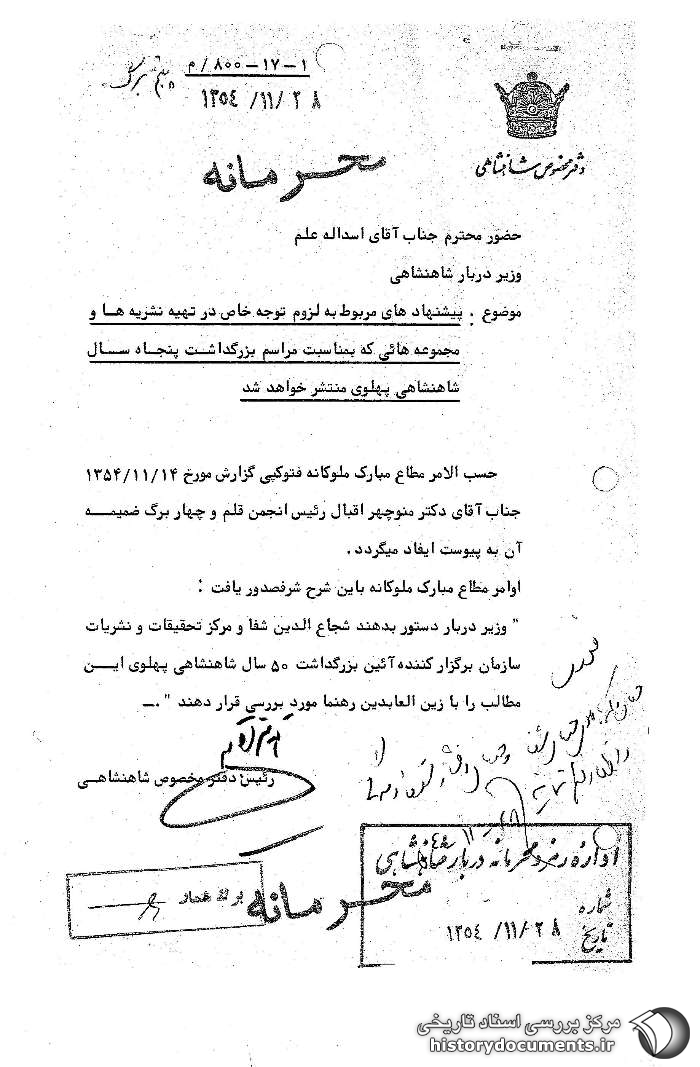 ۱-۱۷-۸۰۰/م
۱۳۵۴/۱۱/۲۸
دفتر مخصوص شاهنشاهی
محرمانه
حضور محترم جناب آقای اسداله علم
وزیر دربار شاهنشاهی
موضوع : پیشنهاد های مربوط به لزوم توجه خاص در تهیه نشریه ها و
مجموعه هائی که بمناسبت مراسم بزرگداشت پنجاه سال
شاهنشاهی پهلوی منتشر خواهد شد
حسب الامر مطاع مبارک ملوکانه فتوکپی گزارش مورخ ۱۳۵۴/۱۱/۱۴
جناب آقای دکتر منوچهر اقبال رئیس انجمن قلم و چهار برگ ضمیمه
آن به پیوست ایفاد میگردد .
اوامر مطاع مبارک ملوکانه باین شرح شرفصدور یافت :
" وزیر دربار دستور بدهند شجاع الدین شفا و مرکز تحقیقات و نشریات
سازمان برگزار کننده آئین بزرگداشت ۵۰ سال شاهنشاهی پهلوی این
مطالب را با زین العابدین رهنما مورد بررسی قرار دهند " .ـ
رئیس دفتر مخصوص شاهنشاهی
اداره رمز و محرمانه دربار شاهنشاهی
شماره
تاریخ ۱۳۵۴/۱۱/۲۸
محرمانه
مرکز بررسی اسناد تاریخی
historydocuments.ir